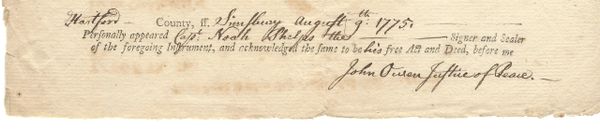 Hartford — County, ss. Simsbury August 9th. 1775.
Personally appeared Capt. Noah Phelps the — Signer and Sealer
of the foregoing Instrument, and acknowledged the same to be his free Act and Deed, before me
John Owen Justice of Peace. —